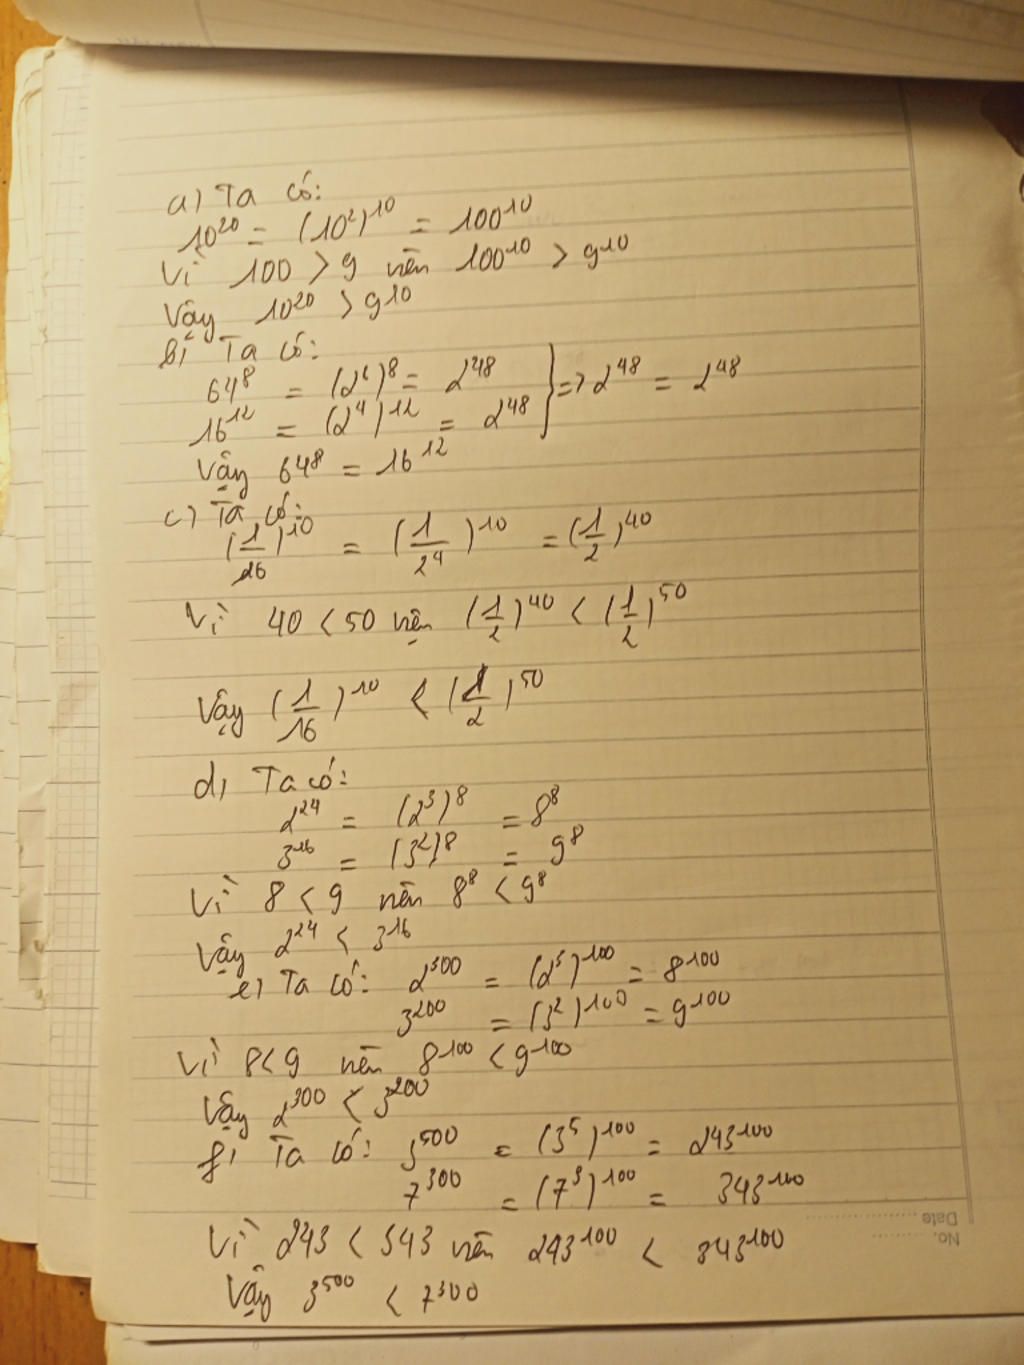 a) Ta có:
10²⁰ = (10²)¹⁰ = 100¹⁰
Vì 100 > 9 nên 100¹⁰ > 9¹⁰
Vậy 10²⁰ > 9¹⁰
b) Ta có:
64⁸ = (2⁶)⁸ = 2⁴⁸
16¹² = (2⁴)¹² = 2⁴⁸ } => 2⁴⁸ = 2⁴⁸
Vậy 64⁸ = 16¹²
c) Ta có:
(1/16)¹⁰ = (1/2⁴)¹⁰ = (1/2)⁴⁰
Vì 40 < 50 nên (1/2)⁴⁰ < (1/2)⁵⁰
Vậy (1/16)¹⁰ < (1/2)⁵⁰
d) Ta có:
2²⁴ = (2³)⁸ = 8⁸
3¹⁶ = (3²)⁸ = 9⁸
Vì 8 < 9 nên 8⁸ < 9⁸
Vậy 2²⁴ < 3¹⁶
e) Ta có: 2³⁰⁰ = (2³)¹⁰⁰ = 8¹⁰⁰
3²⁰⁰ = (3²)¹⁰⁰ = 9¹⁰⁰
Vì 8 < 9 nên 8¹⁰⁰ < 9¹⁰⁰
Vậy 2³⁰⁰ < 3²⁰⁰
f) Ta có: 3⁵⁰⁰ = (3⁵)¹⁰⁰ = 243¹⁰⁰
7³⁰⁰ = (7³)¹⁰⁰ = 343¹⁰⁰
Vì 243 < 343 nên 243¹⁰⁰ < 343¹⁰⁰
Vậy 3⁵⁰⁰ < 7³⁰⁰
Date
No.